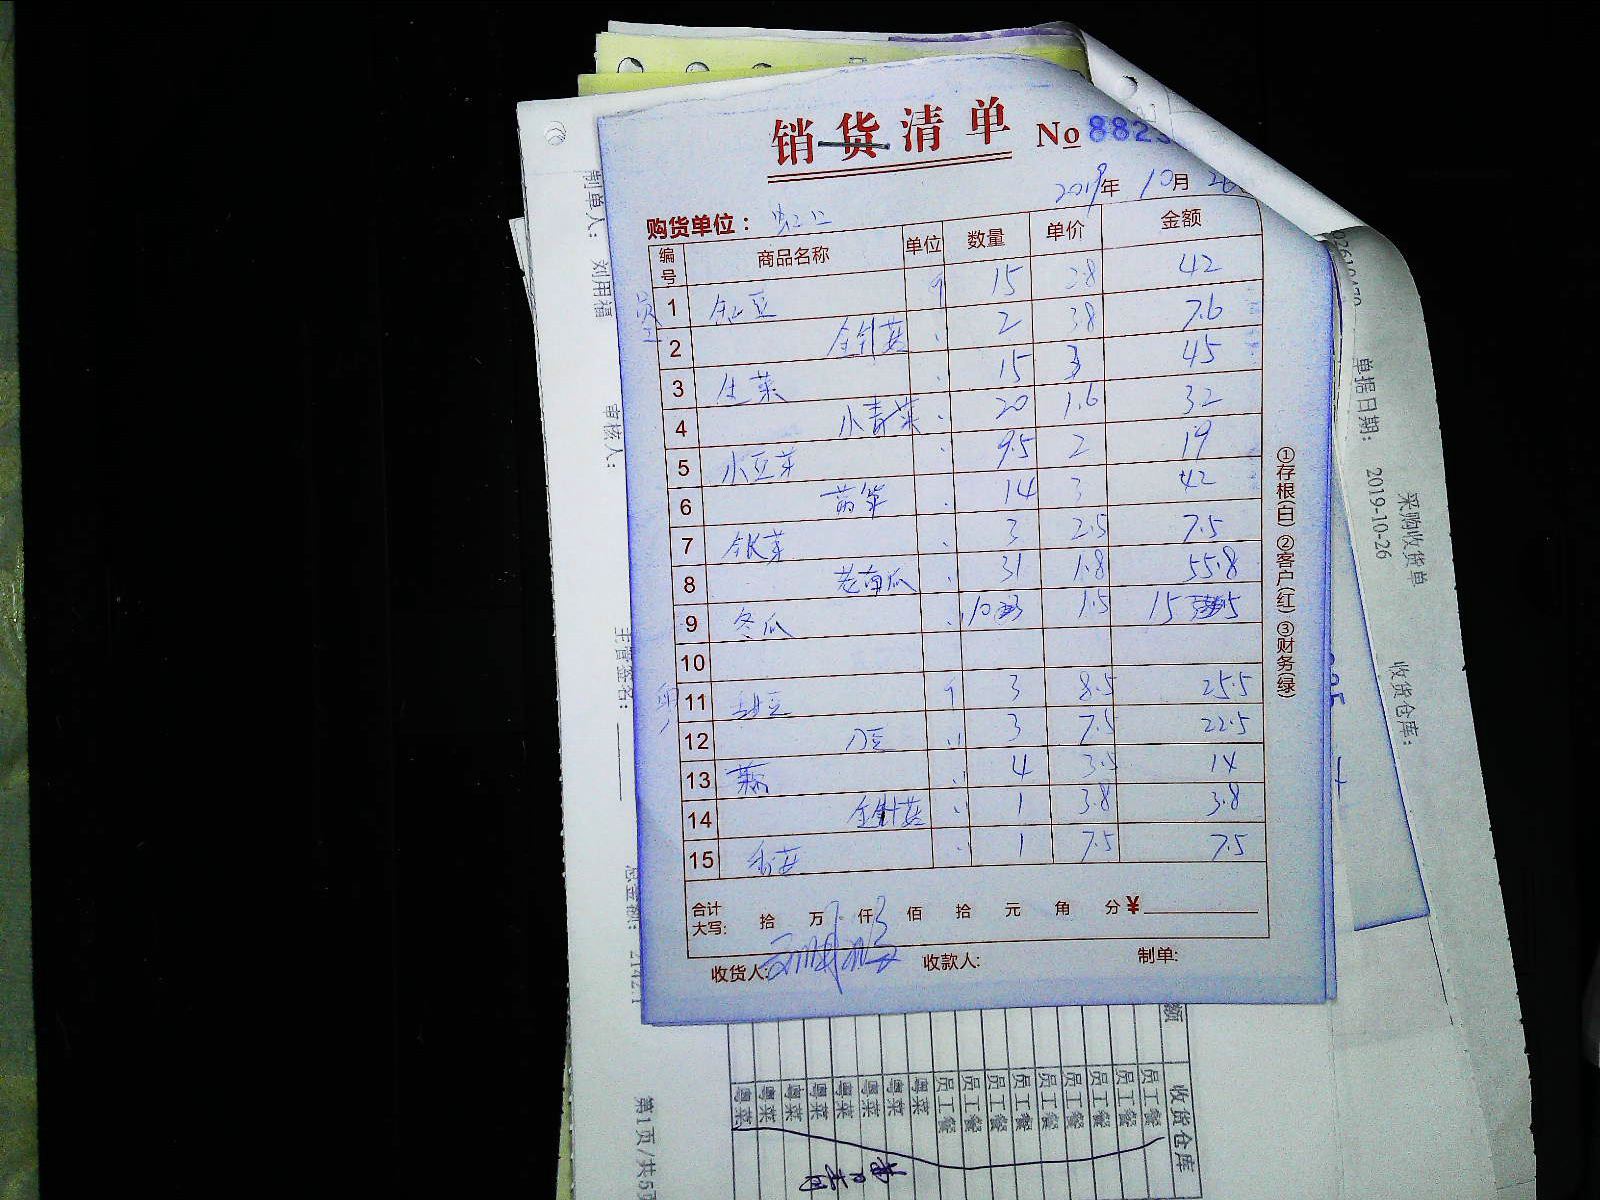 销货清单 No 882
2019年 10月 26
购货单位：
编号 商品名称 单位 数量 单价 金额
1 15 2.8 42
2 金针菇 2 3.8 7.6
3 生菜 15 3 45
4 小青菜 20 1.6 32
5 小豆芽 9.5 2 19
6 莴笋 14 3 42
7 3 2.5 7.5
8 老南瓜 31 1.8 55.8
9 冬瓜 10 1.5 15
10
11 3 8.5 25.5
12 刀豆 3 7.5 22.5
13 4 3.5 14
14 金针菇 1 3.8 3.8
15 1 7.5 7.5
合计大写: 拾 万 仟 佰 拾 元 角 分 ¥
收货人: 收款人: 制单:
①存根(白) ②客户(红) ③财务(绿)
制单人： 刘用福
审核人：
主管签名：
总金额：
第1页/共5页
采购收货单
单据日期： 2019-10-26
收货仓库：
额
收货仓库
员工餐
员工餐
员工餐
员工餐
员工餐
员工餐
员工餐
员工餐
员工餐
粤菜
粤菜
粤菜
粤菜
粤菜
粤菜
粤菜
粤菜